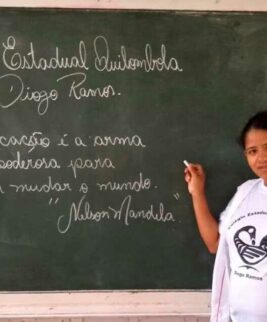 Estadual Quilombola
Diogo Ramos.
cação é a arma
poderosa para
mudar o mundo.
"Nelson Mandela"
Colégio Estadu
Diogo Ramos